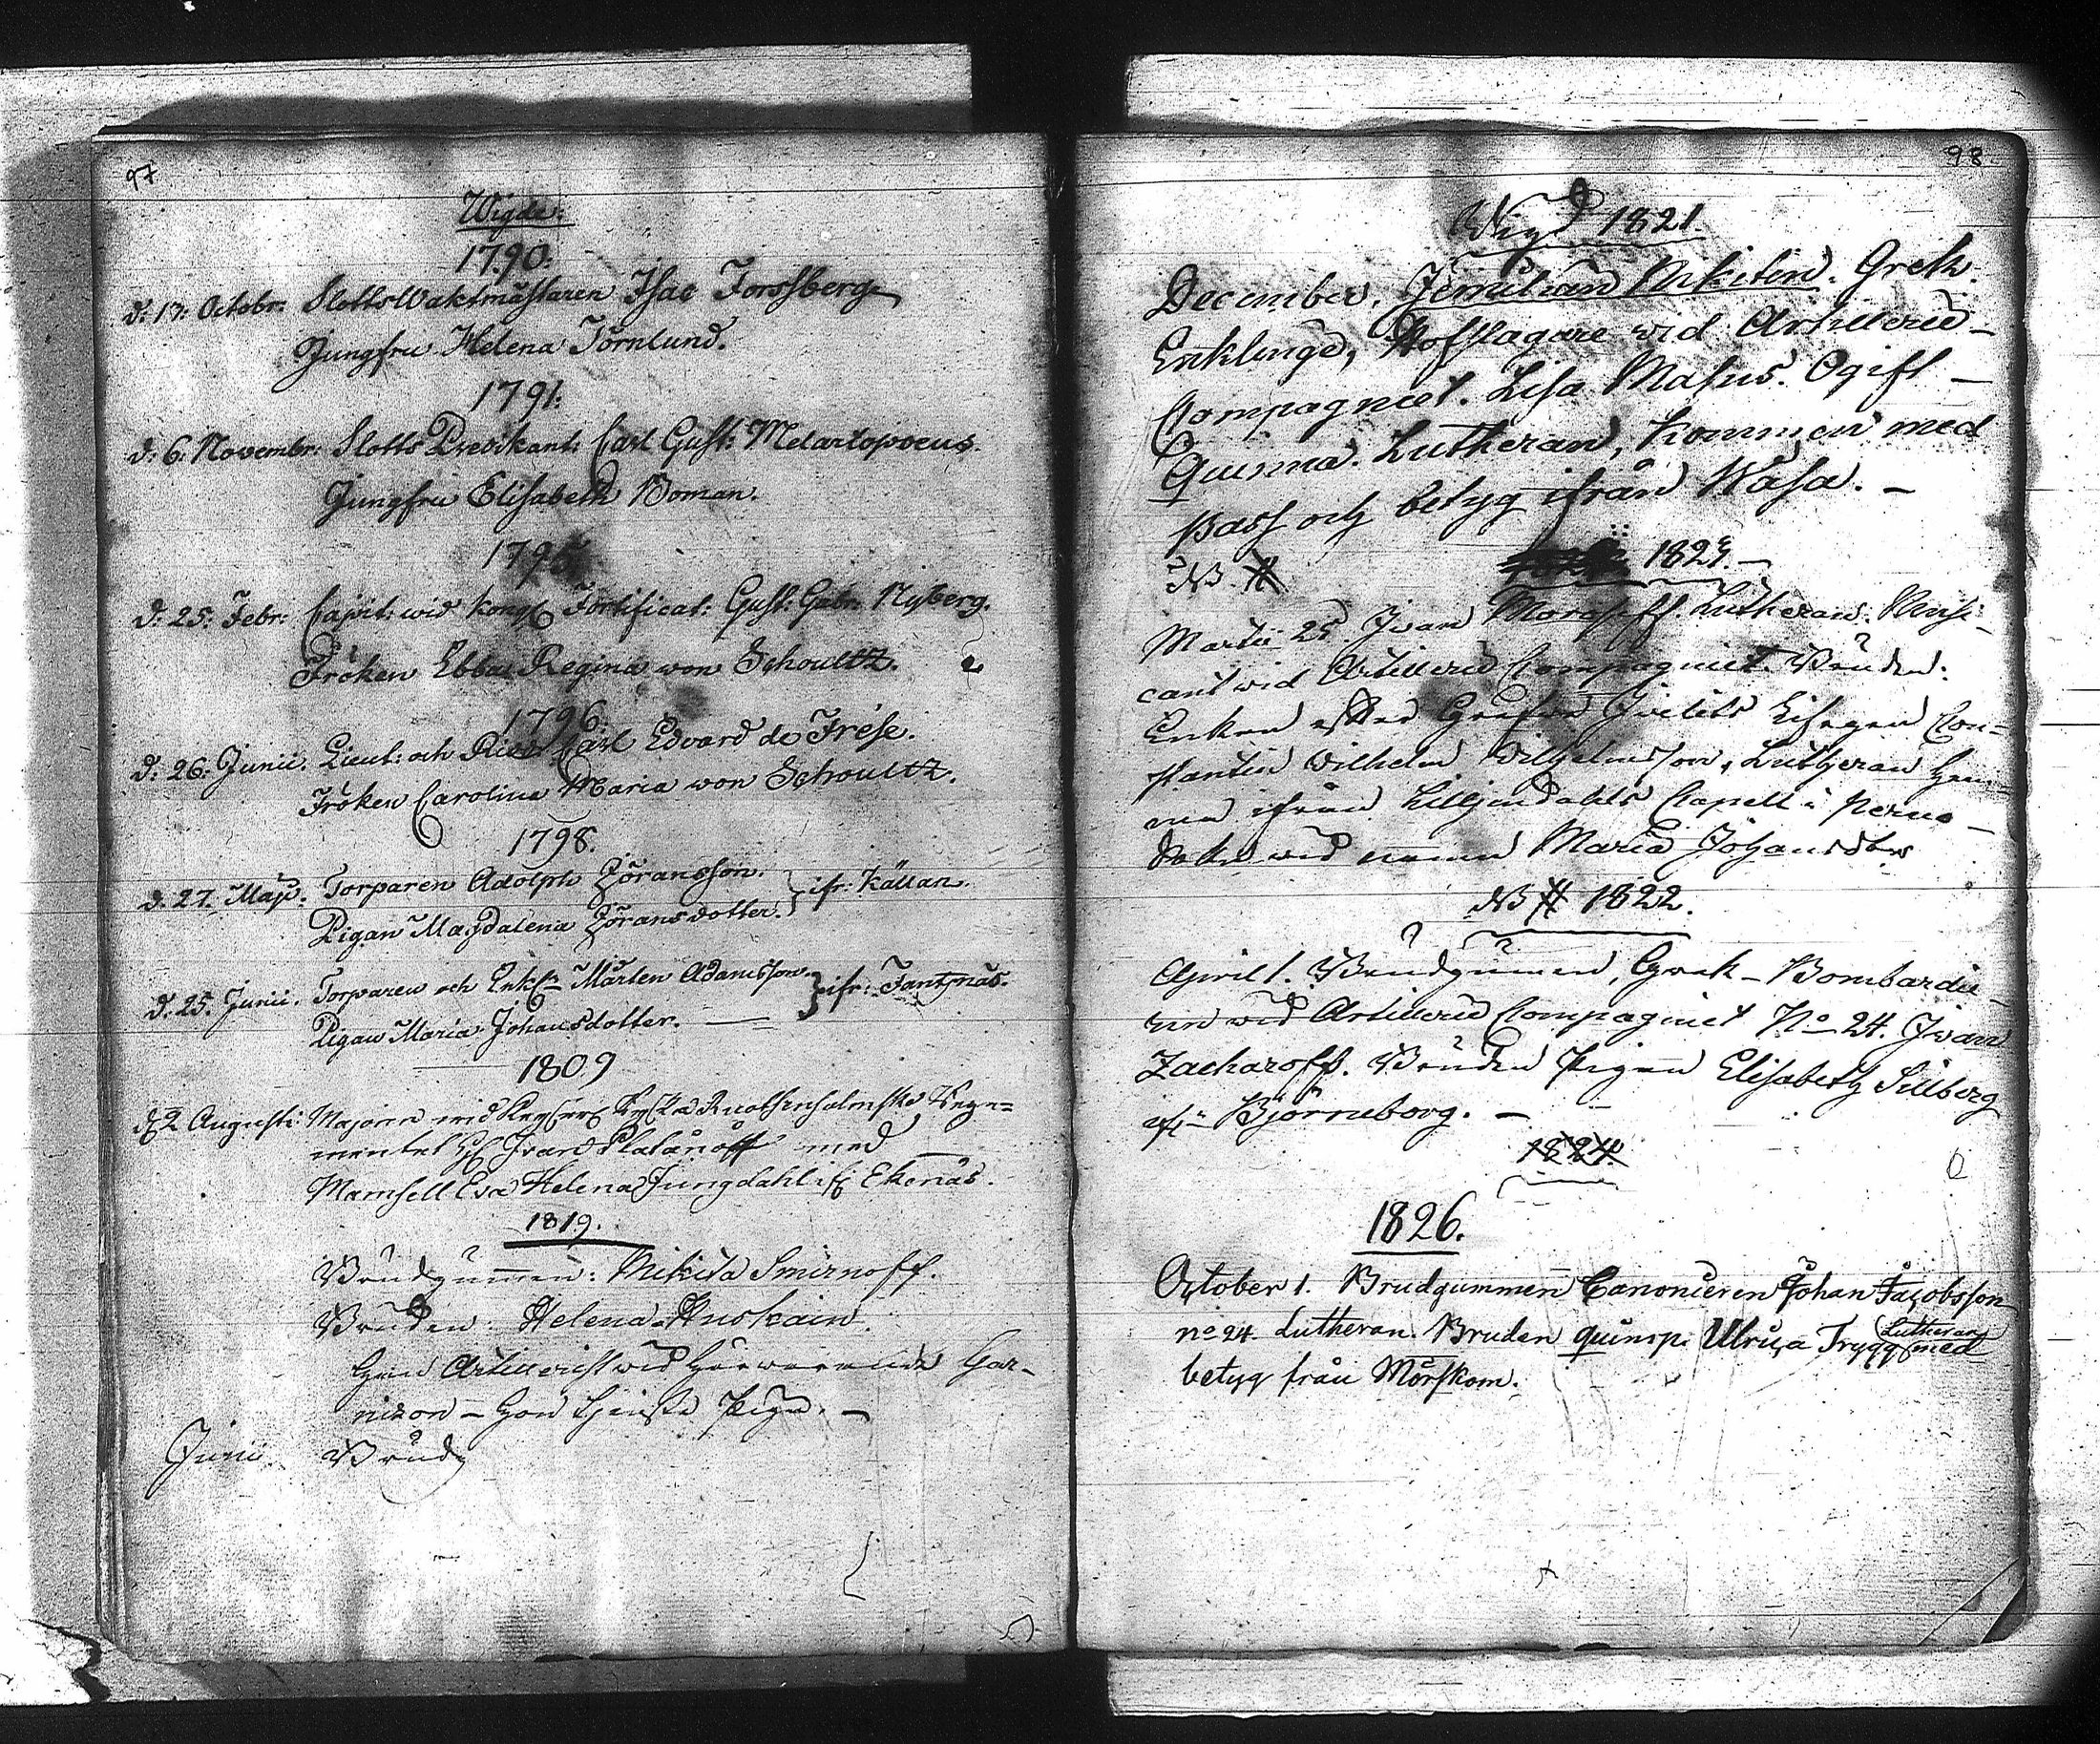 97
Wigde:
1790:
d: 17: Octobr: SlottsWaktmästaren Isac Forssberg
Jungfru Helena Törnlund.
1791:
d: 6: Novembr: Slotts Predikant: Carl Gust: Metartopoeus.
Jungfru Elisabeth Boman.
1795
d: 25: Febr: Capit: wid Kongl Fortificat: Gust: Gabr: Nyberg.
Fröken Ebba Regina won Schoultz.
1796:
d: 26: Junii. Lieut: och Carl Edvard de Frese.
Fröken Carolina Maria won Schoultz.
1798.
d. 27. Maji. Torparen Adolph Göransson. } ifr: Källan.
Pigan Magdalena Göransdotter.
d. 25. Junii. Torparen och Enkl: Mårten Adamsson } ifr: Fantsnäs.
Pigan Maria Johansdotter. —
1809
d 2 Augusti Majoren wid Rege=
mentet H Ivan Platanoff med
Mamsell Eva Helena Ljungdahl ifr Ekenäs.
1819.
Brudgummen: Mikita Smirnoff.
Bruden: Helena Huskain.
Han Artillerist wid härwarande Gar-
nizon - hon tjenste Piga. —
Junii Brudg
98
Wigd 1821.
December. Jemilian Nikitin. Grek.
Enklinge, Hofslagare wid Artillerie-
Compagniet. Lisa Matus. Ogift -
Quinna. Lutheran, kommen med
Pass och betyg ifrån Wasa. -
NB #
1823. -
Martii 25. Ivan Moroff. Lutheran. Musi-
cant wid Artillerie Compagniet. Bruden:
Enkan efter Con-
stantin Wilhelm Wilhelmsson, Lutheran hem-
ma ifrån Liljendahls Capell i Perno
Sokn wid namn Maria Johansdtr
NB # 1822.
April 1. Brudgummen, Grek - Bombardie-
ren wid Artillerie Compagniet No 24. Ivan
Zacharoff. Bruden Pigan Elisabeth Sillberg
ifr Björneborg. -
1824.
1826.
October 1. Brudgummen Canonieren Johan Jacobsson
no 24 Lutheran. Bruden quinsp. Ulrica Trygg Lutheran med
betyg från Mörskom.